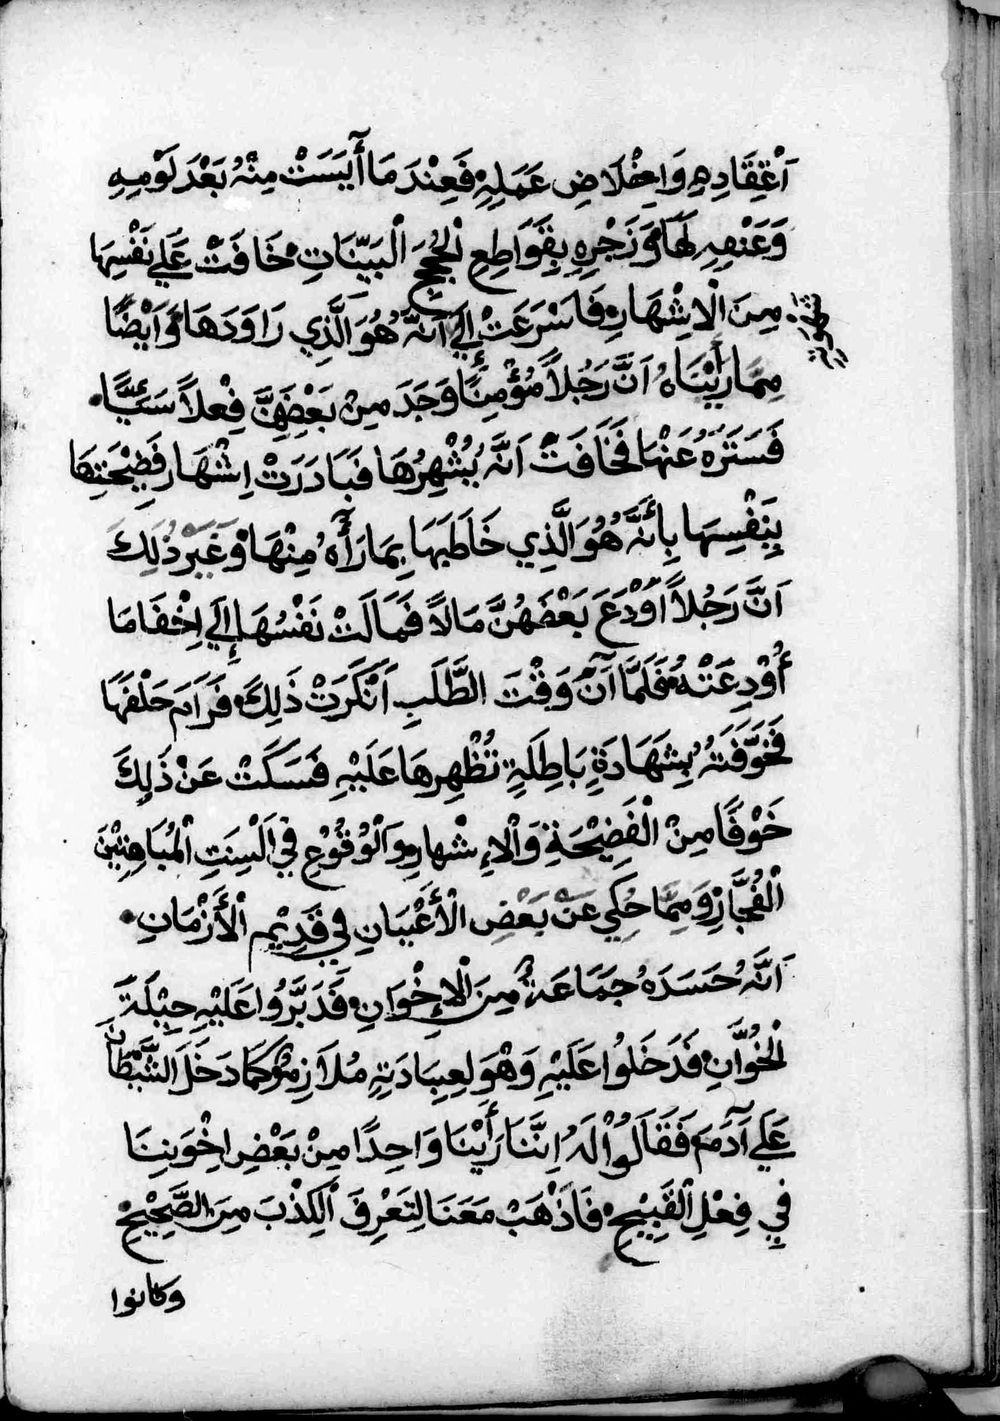 اَعْتِقَادِهِ وَاِخْلَاصِ عَمَلِهِ فَعِنْدَ مَا أَيِسَتْ مِنْهُ بَعْدَ لَوْمِهِ
وَعَنْفِهِ لَهَا وَزَجْرِهِ بِقَوَاطِعِ الْحُجَجِ الْبَيِّنَاتِ خَافَتْ عَلَي نَفْسِهَا
مِنَ الْاِشْهَارِ فَاسْرَعَتْ اِلَي اَنَّهُ هُوَ الَّذِي رَاوَدَهَا وَأَيْضًا
مِمَّا رَأَيْنَاهُ اَنَّ رَجُلاً مُؤْمِنًا وَجَدَ مِنْ بَعْضِهِنَّ فِعْلاً سَيِّئًا
فَسَتَرَهُ عَنْهَا فَخَافَتْ اَنَّهُ يُشْهِرُهَا فَبَادَرَتْ اِشْهَارَ فَضِيْحَتِهَا
بِنَفْسِهَا بِأَنَّهُ هُوَ الَّذِي خَاطَبَهَا بِمَا رَأَهُ مِنْهَا وَغَيْرَ ذٰلِكَ
اَنَّ رَجُلاً اَوْدَعَ بَعْضَهُنَّ مَالاً فَمَالَتْ نَفْسُهَا اِلَي اِخْفَا مَا
أُوْدِعَتْهُ فَلَمَّا آنَ وَقْتَ الطَّلَبِ اَنْكَرَتْ ذَلِكَ فَرَامَ حَلْفَهَا
فَخَوَّفَتْهُ بِشَهَادَةٍ بَاطِلَةٍ تُظْهِرُهَا عَلَيْهِ فَسَكَتْ عَنْ ذَلِكَ
خَوْفًا مِنْ الْفَضِيْحَةِ وَالْاِشْهَارِ وَالْوُقُوْعِ فِي اَلْسِنَتِ الْمُبَاهِتِيْنَ
الْفُجَّارِ وَمِمَّا حُكِي عَنْ بَعْضِ الْأَعْيَانِ فِي قَدِيْمِ الْأَزْمَانِ
اَنَّهُ حَسَدَهُ جَمَاعَةٌ مِنَ الْاِخْوَانِ فَدَبَّرُوا عَلَيْهِ حِيْلَةَ
الْخُوَّانِ فَدَخَلُوا عَلَيْهِ وَهْوَ لِعِبَادَتِهِ مُلَازِمٌ كَمَا دَخَلَ الشَّيْطَانُ
عَلَي آدَمَ فَقَالُوْا لَهُ اِنَّنَا رَأَيْنَا وَاحِدًا مِنْ بَعْضِ اِخْوَنِنَا
فِي فِعْلِ الْقَبِيْحِ فَاذْهَبْ مَعَنَا لِتَعْرِفَ الْكِذْبَ مِنَ الصَّحِيْحِ
وكانوا